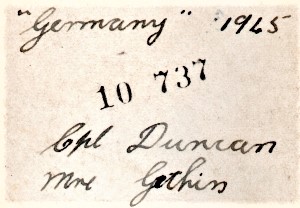 "Germany" 1945
10 737
Cpl Duncan
Mne Gethin